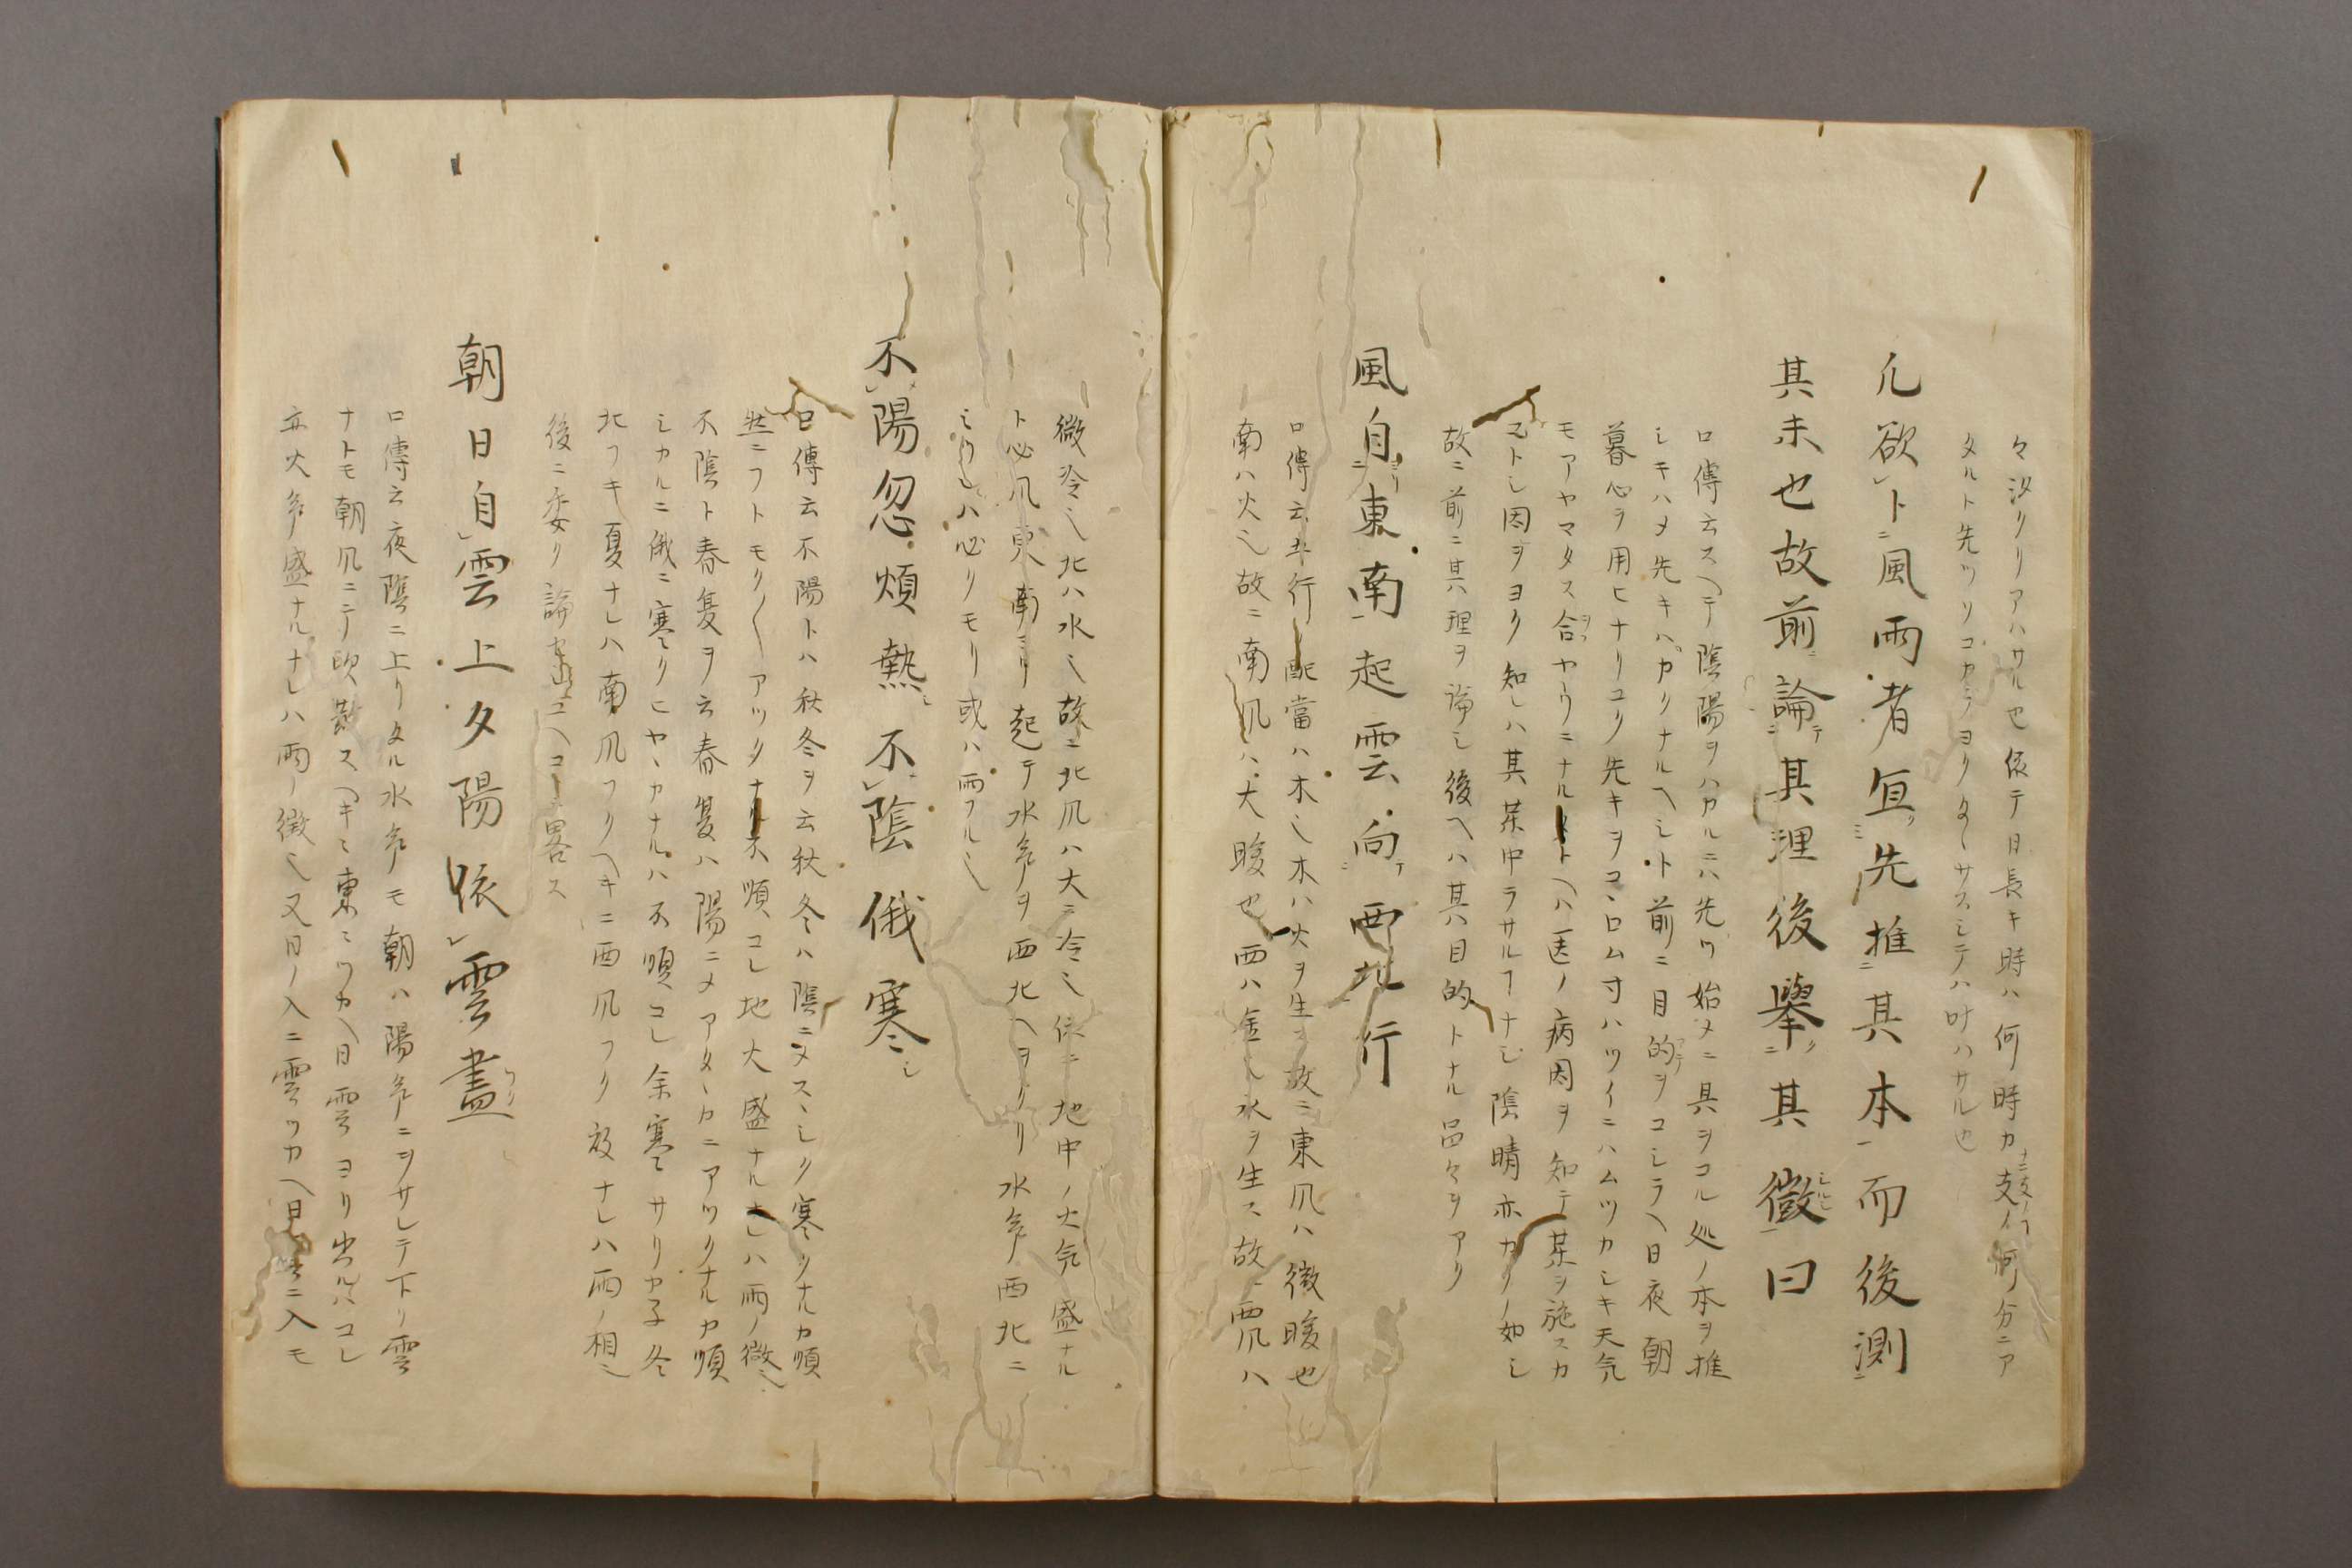 々汐リリアハワル也依テ日長キ時ハ何時カ支ノ何分ニア
タルト先ツソコカラヨクタヽサスシテハ叶ハサル也
凡欲ト風雨者宜先推其本而後測
其未也故前論其理後擧其徵曰
口傳云スヘテ陰陽ヲハカルニハ先ツ始メニ具ヲコル処ノ本ヲ推
シキハメ先キハカリナルヘシト前ニ目的ヲコシラヘ日夜朝
暮心ヲ用ヒナリユク先キヲコヽロム寸ハツイニハムツカシキ天気
モアヤマタス合ヤウニナルタトヘハ医ノ病因ヲ知テ藥ヲ施スカ
コトシ因ヲヨク知レハ其藥中ラサルヿナシ陰晴亦カクノ如シ
故ニ前ニ其理ヲ論シ後ヘハ其目的トナル品々ヲアク
風自東南起雲向西北行
口傳云五行配當ハ木也木ハ火ヲ生ス故ニ東風ハ微暖也
南ハ火也故ニ南風ハ大暖也西ハ金也水ヲ生ス故ニ西風ハ
微冷也北ハ水也故ニ北風ハ大ニ冷也依ニ地中ノ火気盛ナル
ト必風東南ヨリ起テ水気ヲ西北ヘヲクリ水気西北ニ
ハ必クモリ或ハ雨フル也
不陽忽煩熱不陰俄寒
口傳云不陽トハ秋冬ヲ云秋冬ハ陰ニメスヽシク寒クナルカ順
然ニフトモク〱アツクナル不順コレ地火盛ナルナレハ雨ノ徴也
不陰ト春夏ヲ云春夏ハ陽ニメアタヽカニアツクナルカ順
シカルニ俄ニ寒クヒヤヽカナルハ不順コレ余寒サリヤ子冬
北フキ夏ナレハ南風フクヘキニ西風フク故ナレハ雨ノ相也
後ニ委ク論セルユヘコヽニ畧ス
朝日自雲上夕陽依雲盡
口傳云夜陰ニ上リタル水気モ朝ハ陽気ニヲサレテ下リ雲
ナトモ朝風ニテ吹散スヘキニ東ニワカヘ日雲ヨリ出ルハコレ
亦火気盛ナルナレハ雨ノ徴也又日ノ入ニ雲ワカヘ日雲ニ入モ